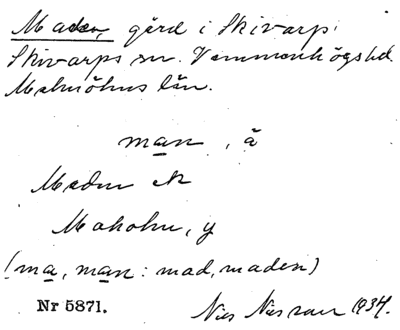 Maden, gård i Skivarp.
Skivarps sn. Vemmenhögs hd.
Malmöhus län.
man, å
Maden
Maholm, y
(ma, man: mad, maden)
Nr 5871.
Nils Nilsson 1934.